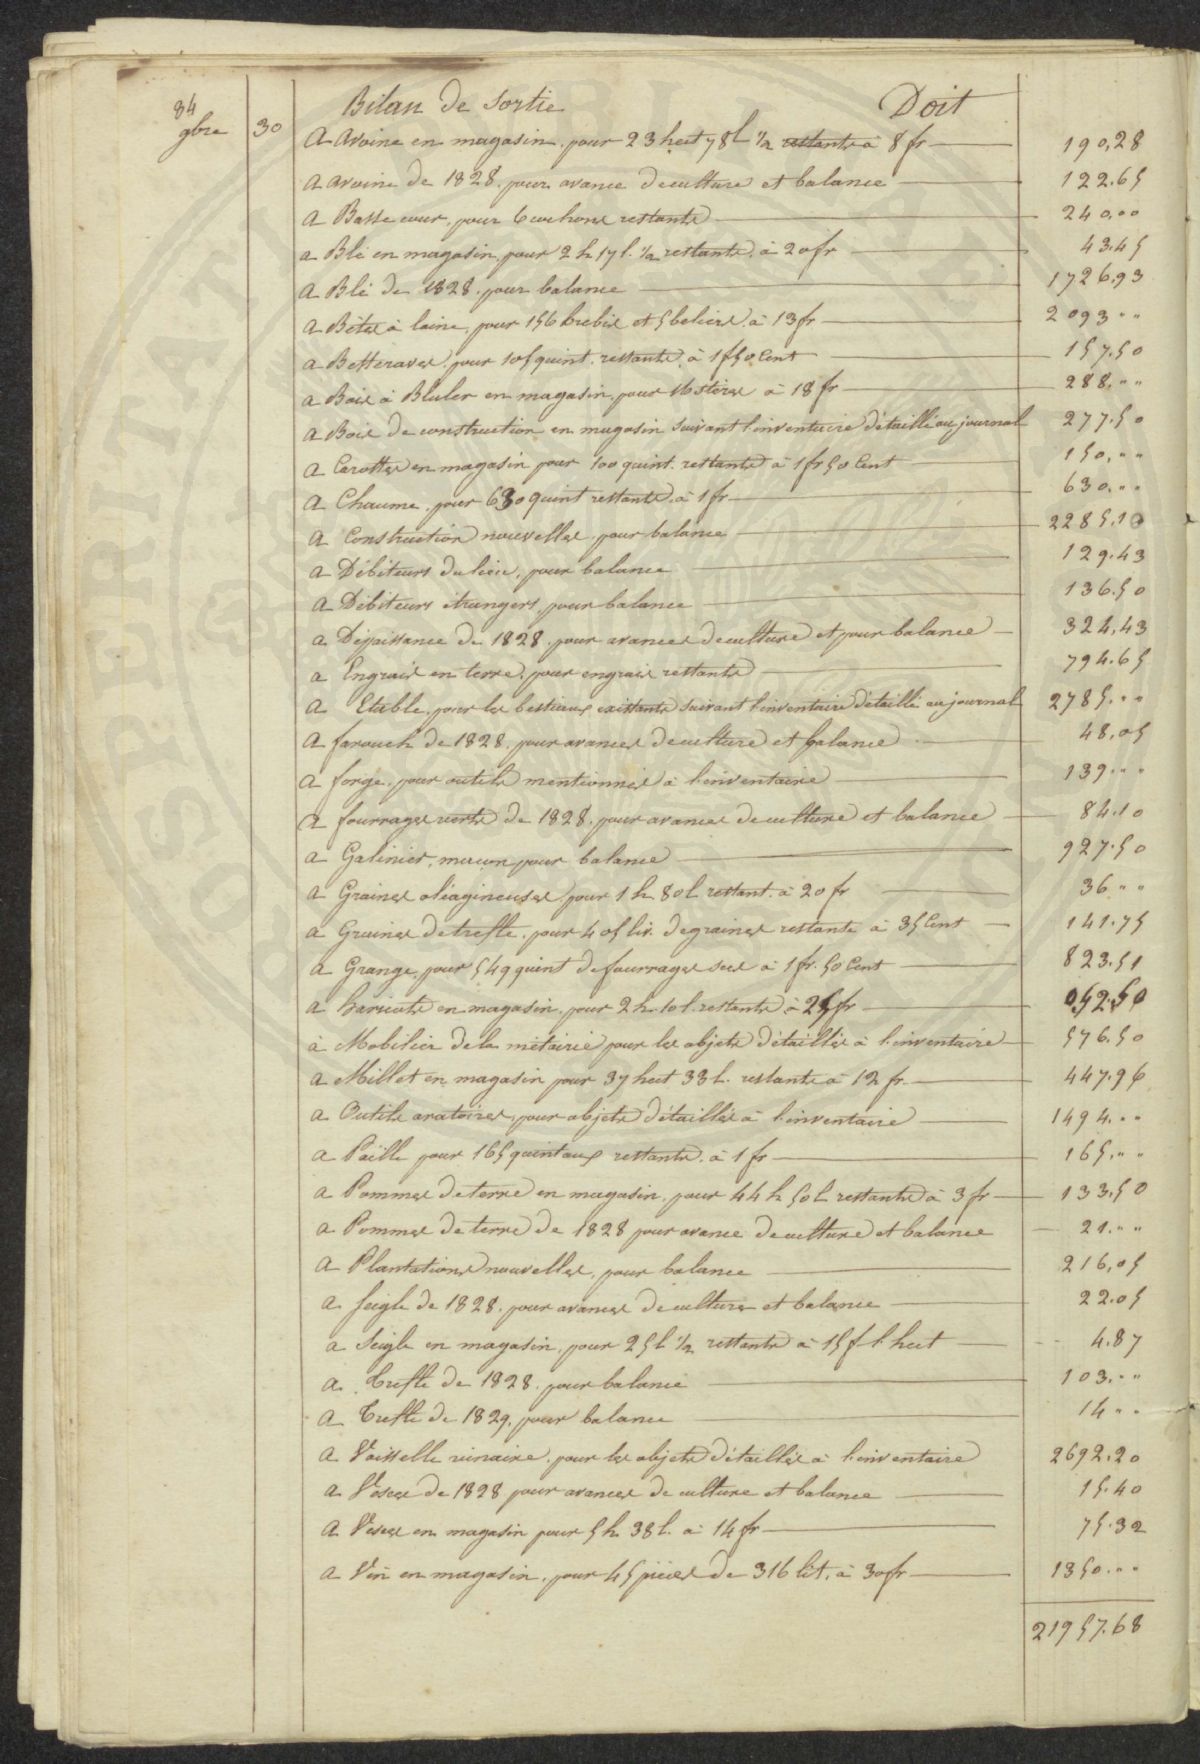 84
9bre 30 Bilan de sortie Doit
A Avoine en magasin, pour 23 hect 78 l ½ restante à 8 fr 190,28
A avoine de 1828. pour avance de culture et balance 122.65
A Basse cour, pour 6 cochons restants 240,""
a Blé en magasin, pour 2 h 17 l. ½ restants. à 20 fr 43.45
A Blé de 1828. pour balance 1726.93
A Bêtes à laine, pour 156 brebis et 5 beliers. à 13 fr 2093 ""
a Betteraves. pour 105 quint. restants. à 1 f 50 Cent 157.50
a Bois à Bluler en magasin, pour 16 stères à 18 fr 288.""
A Bois de construction en magasin suivant l'inventaire détaillé au journal 277.50
A Carottes en magasin pour 100 quint. restants à 1 fr 50 Cent 150,""
A Chaume. pour 630 quint restants. à 1 fr 630.""
A Construction nouvelles. pour balance 2285.10
a Débiteurs du lieu, pour balance 129.43
A Débiteurs étrangers, pour balance 136.50
a Dépaissance de 1828. pour avances de culture et pour balance 324,43
a Engrais en terre. pour engrais restants 794.65
A Etable. pour les bestiaux existants suivant l'inventaire détaillé au journal 2785.""
A farouch de 1828, pour avances de culture et balance 48,05
A forge. pour outils mentionnés à l'inventaire 139.""
A fourrages verts de 1828. pour avances de culture et balance 84.10
a Galinier, maçon pour balance 927.50
A Graines oléagineuses pour 1 h. 80 l. restant. à 20 fr 36 ""
a Graines de trefle. pour 405 liv. de graines restante à 35 Cent 141.75
a Grange, pour 549 quint de fourrages secs à 1 fr. 50 Cent 823.51
a haricots en magasin. pour 2 h. 10 l. restants à 25 fr 052.50
à Mobilier de la métairie pour les objets détaillés à l'inventaire 576.50
a Millet en magasin pour 37 hect 33 l. restants à 12 fr. 447.96
a Outils aratoires, pour objets détaillés à l'inventaire 1494.""
a Paille pour 165 quintaux restants. à 1 fr 165.""
A Pommes de terre en magasin, pour 44 h 50 l restants à 3 fr 133.50
a Pommes de terre de 1828 pour avance de culture et balance 21.""
A Plantations nouvelles, pour balance 216,05
a Seigle de 1828. pour avances de culture et balance 22.05
a Seigle en magasin, pour 25 l ½ restants à 15 f l'hect 4.87
a. Trefle de 1828. pour balance 103.""
A. Trefle de 1829. pour balance 14 ""
a Vaisselle vinaire. pour les objets détaillés à l'inventaire 2692.20
a Vesces de 1828 pour avances de culture et balance 15.40
A Vesces en magasin pour 5 h. 38 l. à 14 fr 75.32
a Vin en magasin, pour 45 pièces de 316 lit, à 30 fr 1350.""
21957.68